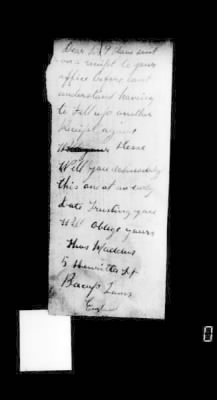 Dear Sir I have sent
one receipt to your
office before cant
understand having
to fill up another
Receipt again
Please
Will you
this one at an early
date Trusting you
Will Oblige yours
Thos Waddens
5 Henrietta St
Bacup Lancs
England